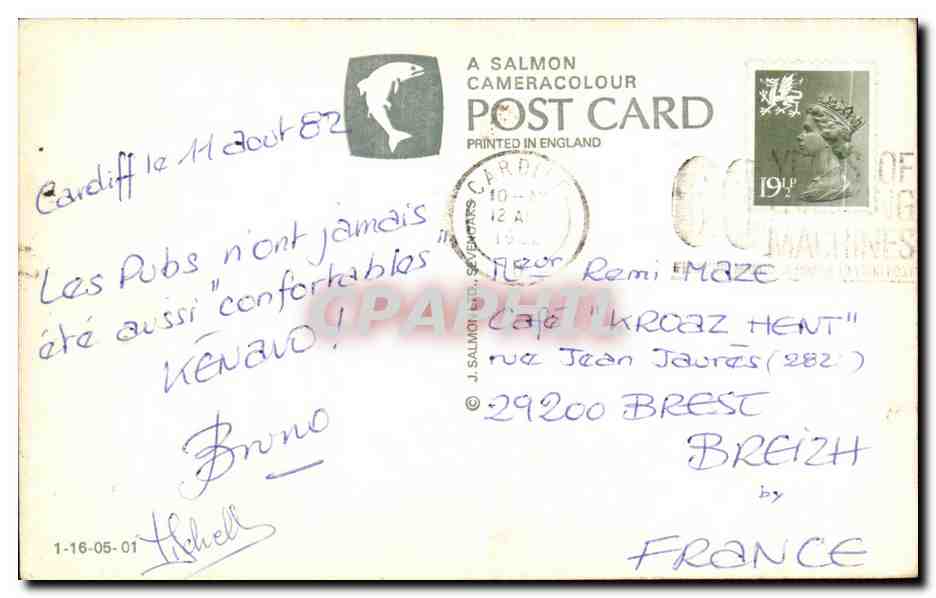 A SALMON
CAMERACOLOUR
POST CARD
PRINTED IN ENGLAND
Cardiff le 11 aout 82
Les Pubs n'ont jamais
été aussi "confortables"
KENAVO !
Bruno
1-16-05-01
© J. SALMON LTD., SEVENOAKS
CARDIFF
12 A
19½P
OF
MACHINES
Meur Remi MAZE
Café "KROAZ HENT"
rue Jean Jaurès (282)
29200 BREST
BREIZH
by
FRANCE
CPAPHIL